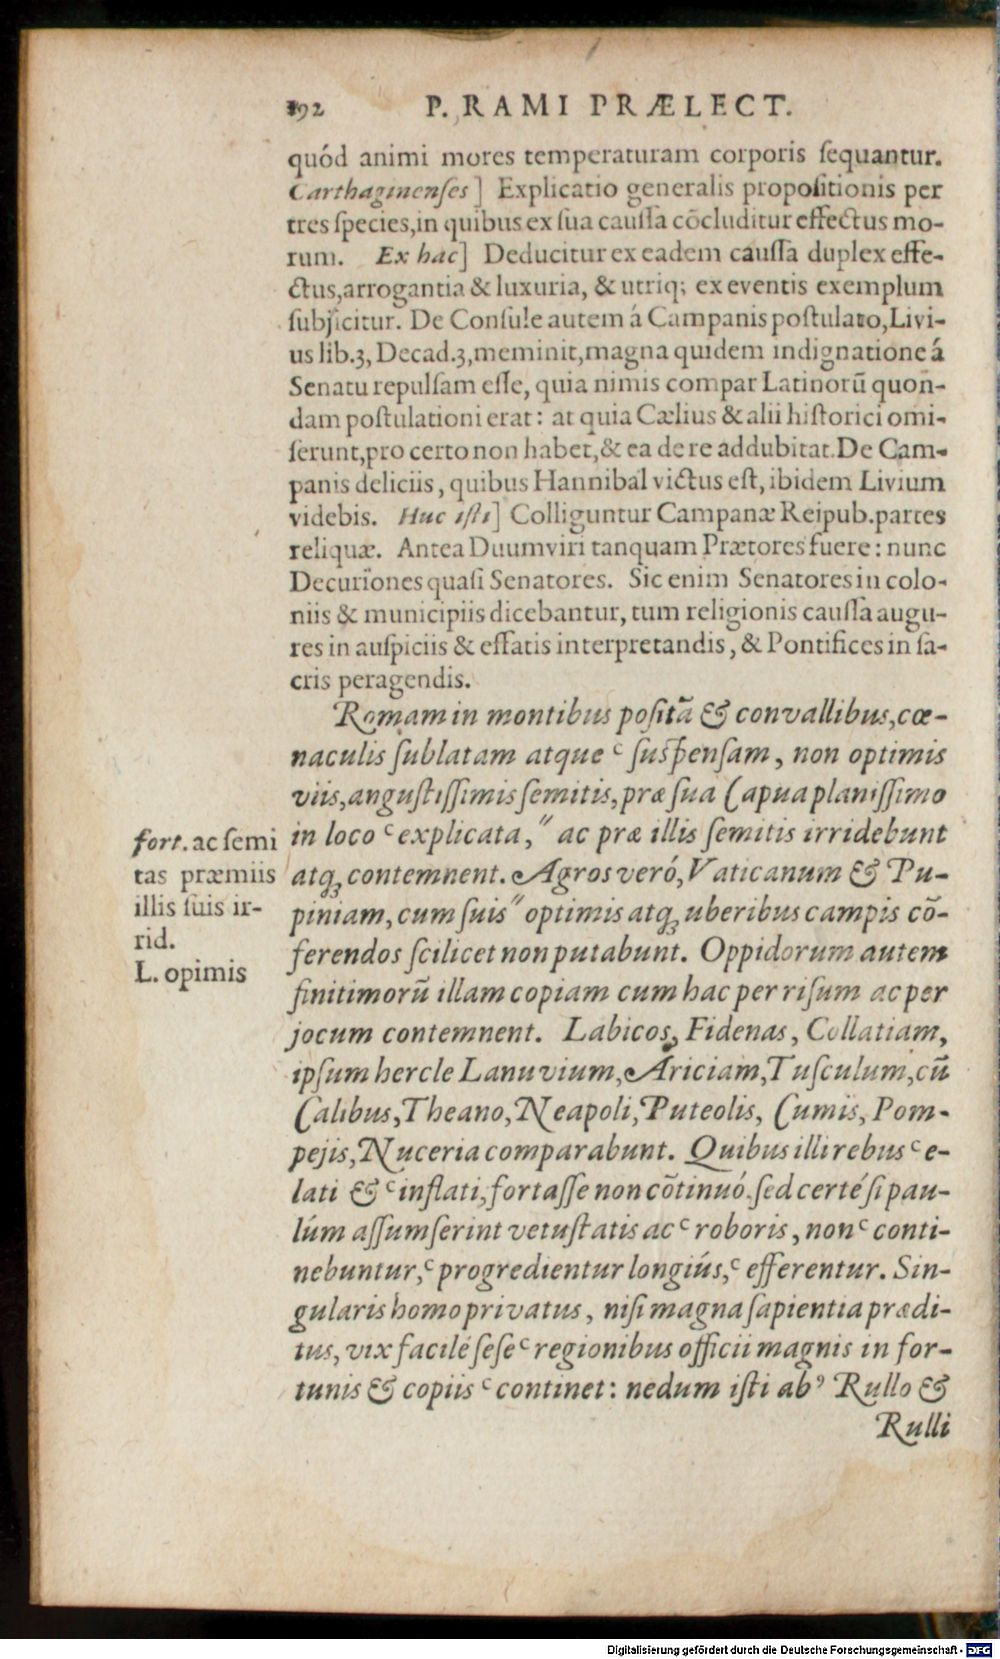 192 P. RAMI PRÆLECT.
quód animi mores temperaturam corporis ſequantur.
Carthaginenſes] Explicatio generalis propoſitionis per
tres ſpecies, in quibus ex ſua cauſſa cōcluditur effectus mo-
rum. Ex hac] Deducitur ex eadem cauſſa duplex effe-
ctus, arrogantia & luxuria, & utriq; ex eventis exemplum
ſubjicitur. De Conſule autem á Campanis poſtulato, Livi-
us lib.3, Decad.3, meminit, magna quidem indignatione á
Senatu repulſam eſſe, quia nimis compar Latinorū quon-
dam poſtulationi erat: at quia Cælius & alii hiſtorici omi-
ſerunt, pro certo non habet, & ea de re addubitat. De Cam-
panis deliciis, quibus Hannibal victus eſt, ibidem Livium
videbis. Huc iſti] Colliguntur Campanæ Reipub. partes
reliquæ. Antea Duumviri tanquam Prætores fuere: nunc
Decuriones quaſi Senatores. Sic enim Senatores in colo-
niis & municipiis dicebantur, tum religionis cauſſa augu-
res in auſpiciis & effatis interpretandis, & Pontifices in ſa-
cris peragendis.
Romam in montibus poſitā & convallibus, cœ-
naculis ſublatam atque ᶜ ſuſpenſam, non optimis
viis, anguſtiſſimis ſemitis, præ ſua Capua planiſſimo
in loco ᶜ explicata, " ac præ illis ſemitis irridebunt
atq; contemnent. Agros veró, Vaticanum & Pu-
piniam, cum ſuis " optimis atq; uberibus campis cō-
ferendos ſcilicet non putabunt. Oppidorum autem
finitimorū illam copiam cum hac per riſum ac per
jocum contemnent. Labicos, Fidenas, Collatiam,
ipſum hercle Lanuvium, Ariciam, Tuſculum, cū
Calibus, Theano, Neapoli, Puteolis, Cumis, Pom-
pejis, Nuceria comparabunt. Quibus illi rebus ᶜ e-
lati & ᶜ inflati, fortaſſe non cōtinuó, ſed certé ſi pau-
lúm aſſumſerint vetuſtatis ac ᶜ roboris, non ᶜ conti-
nebuntur, ᶜ progredientur longiús, ᶜ efferentur. Sin-
gularis homo privatus, niſi magna ſapientia prædi-
tus, vix facilé ſeſe ᶜ regionibus officii magnis in for-
tunis & copiis ᶜ continet: nedum iſti ab ⁹ Rullo &
Rulli
fort. ac ſemi
tas præmiis
illis ſuis ir-
rid.
L. opimis
Digitalisierung gefördert durch die Deutsche Forschungsgemeinschaft - DFG